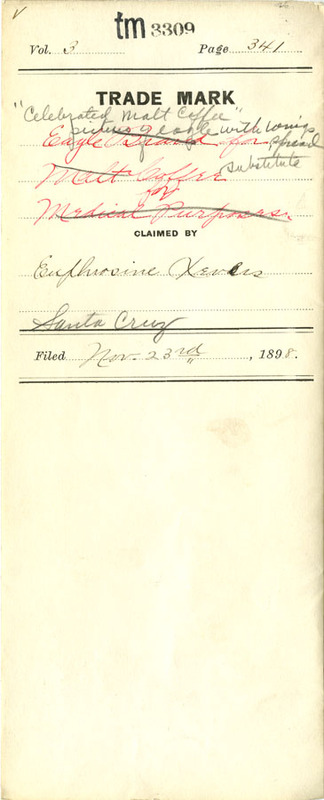 ✓
tm 3309
Vol. 3 Page 341
TRADE MARK
"Celebrated Malt Coffee"
picture of eagle with wings spread
Eagle Brand for
substitute
Malt Coffee
for
Medical Purposes.
CLAIMED BY
Euphrosine Xevers
Santa Cruz
Filed Nov. 23rd, 1898.